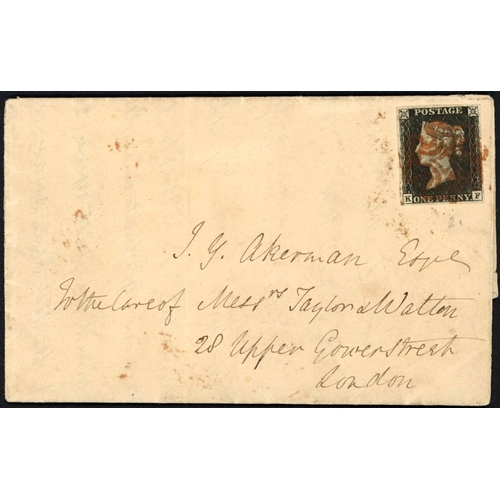 POSTAGE
K ONE PENNY F
J. Y. Akerman Esqre
To the Care of Messrs Taylor & Walton
28 Upper Gower Street
London